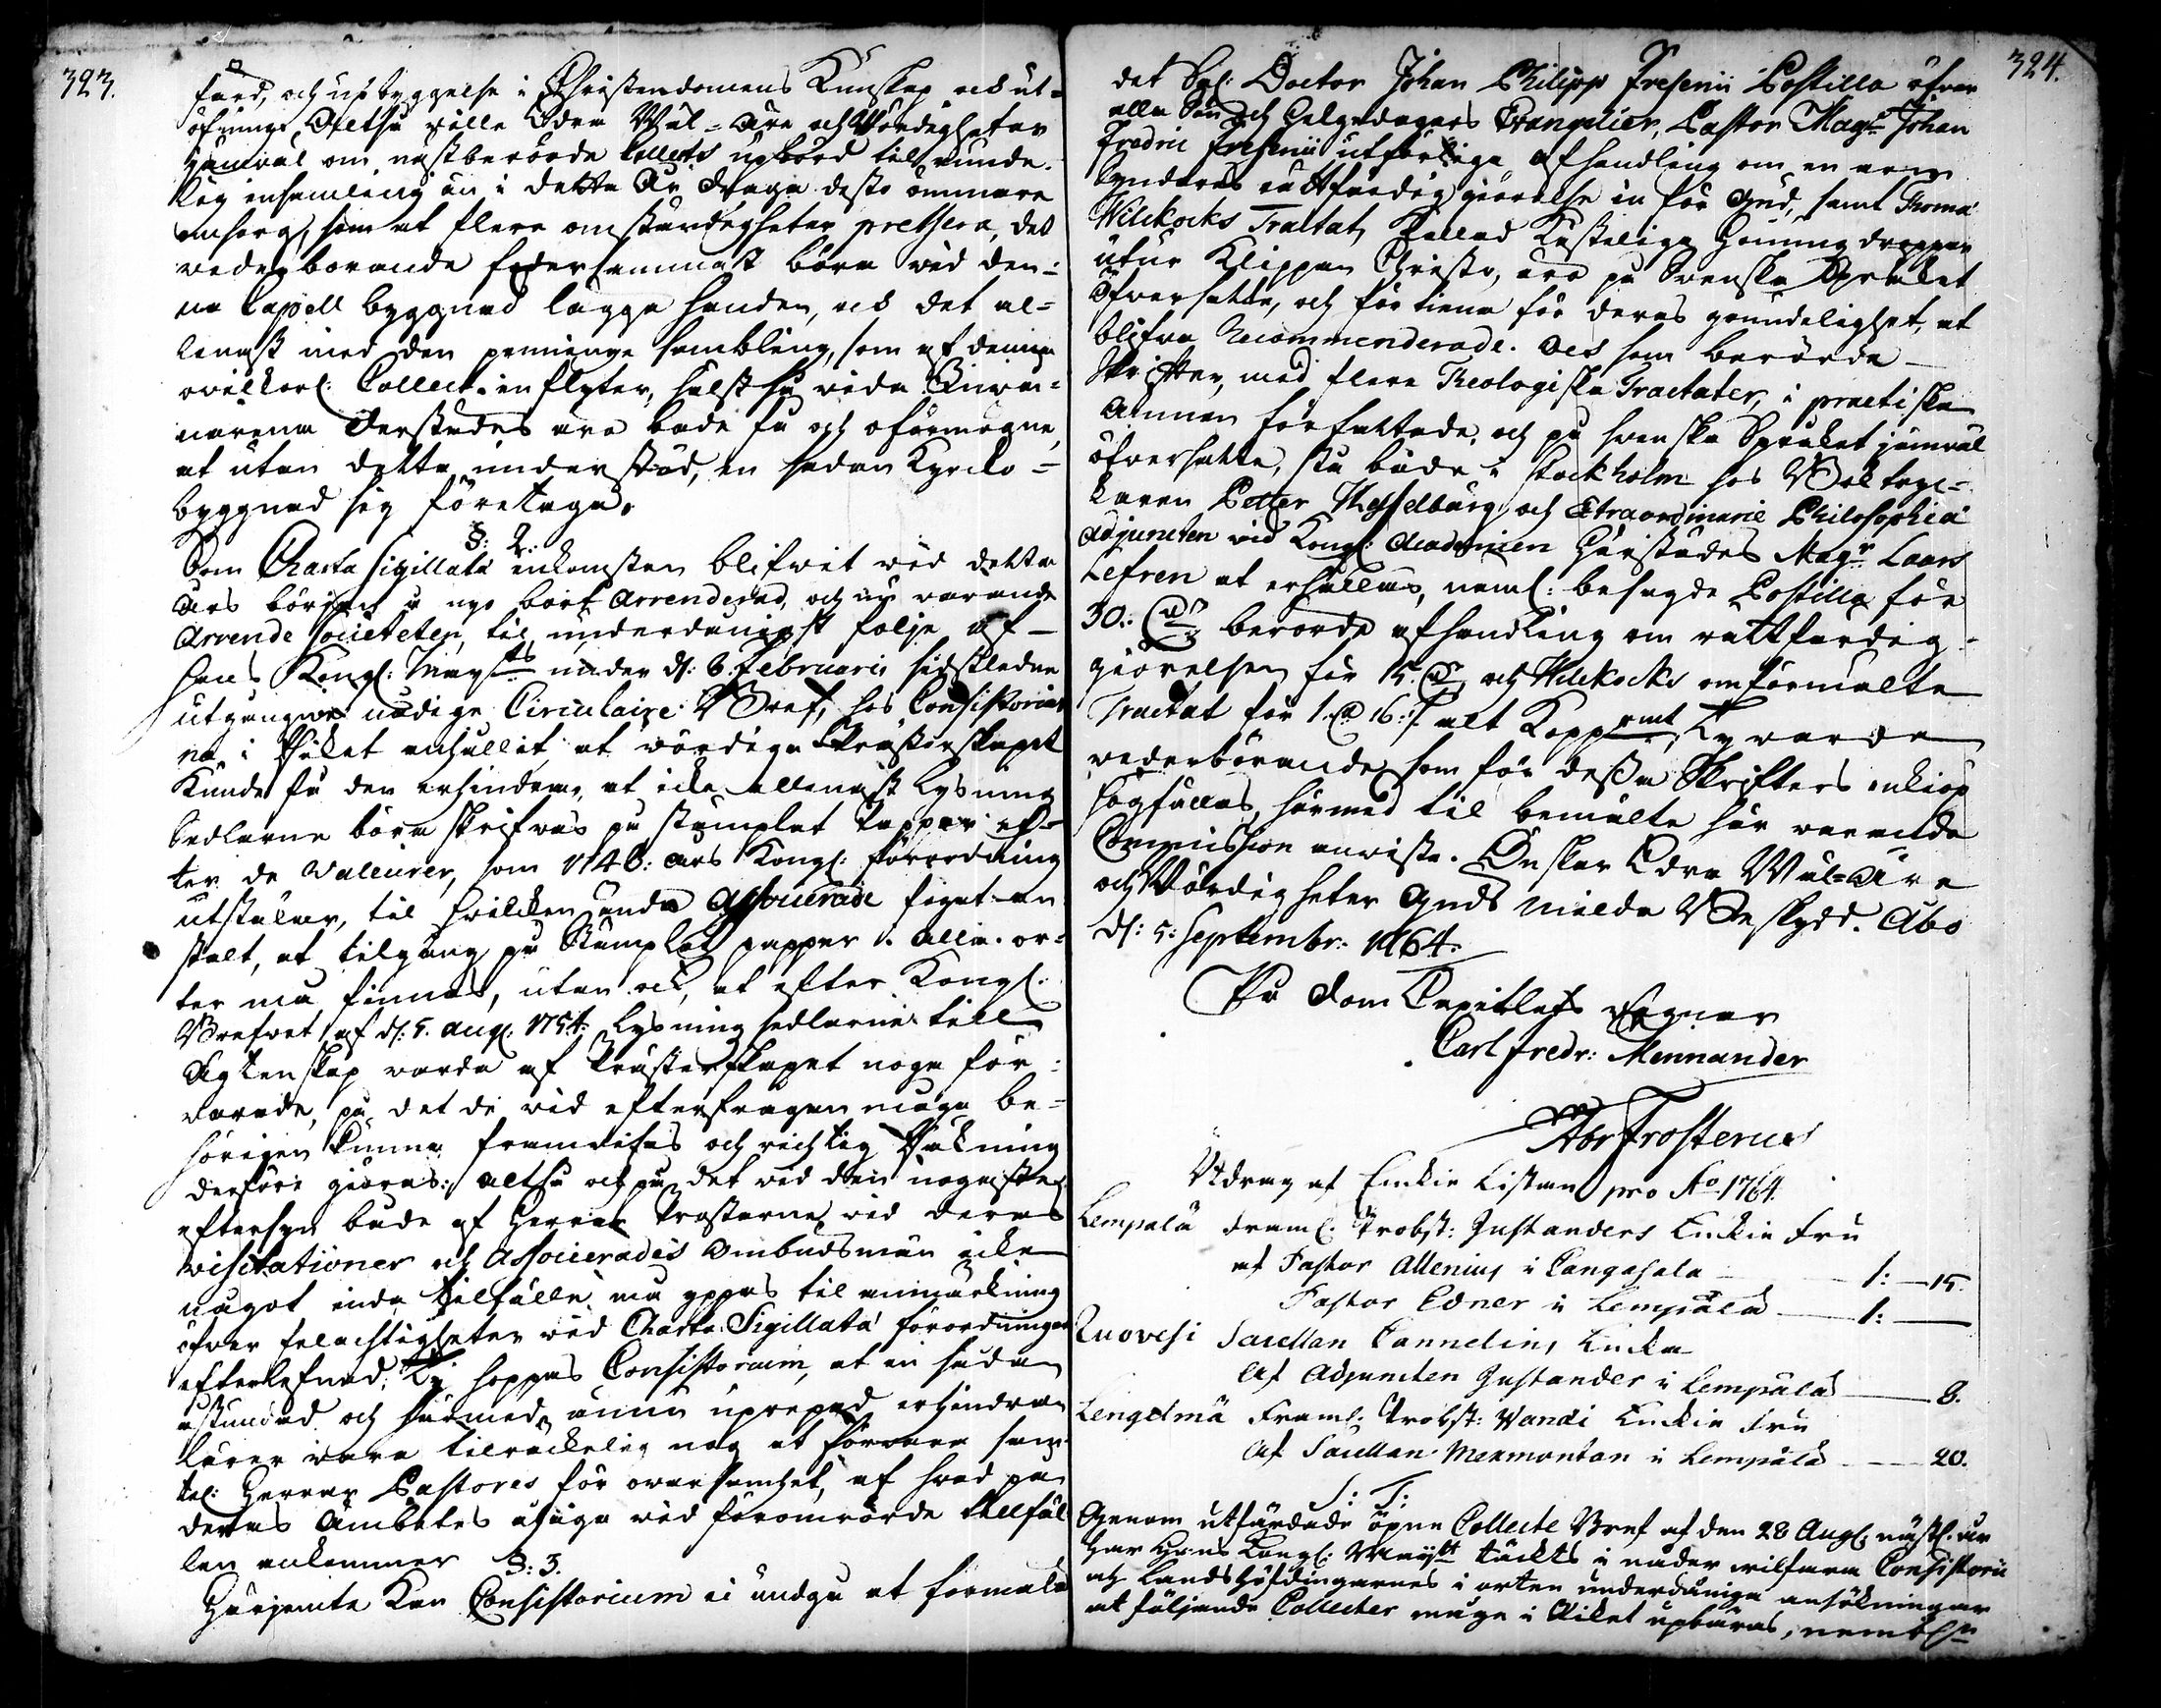 323.
färd, och upbyggelse i Christendomens Kunskap och ut-
öfning, Altså wille Edra Wäl-Äre och Wördigheter
jämwäl om nästberörde Collects upbörd til runde-
lig insamling än i detta År draga desto ömmare
omsorg, som at flere omständigheter prehsera, det
wederbörande fodersammast böra wid den-
na Capell byggnad lägga handen, och det al-
lenast med den penninge sambling, som af denna
owilkorl: Collect inflyter, hälst så wida Inwå-
narena derstädes äro både få och oförmögne,
at utan detta understöd, en sådan Kyrcko-
byggnad sig företaga.
§: 2.
Som Charta Sigillatæ inkomsten blifwit wid detta
års början å nyo bort arrenderad, och nu warande
Arrende Societeten, til underdånigst följe af
Hans Kongl: Maij:ts under d: 6. Februarii sidstledne
utgångne nådige Circulaire Bref, hos Consistorier-
na i Riket anhållit, at wördiga Prästerskapet
Kunde få den erhindran, at icke allenast Lysning
Sedlarne böra skrifwas på stämplat Papper ef-
ter de Valeurer, som 1748: års Kongl: förordning
utstakar, til hwilcken ända Associerade fogat an-
stalt, at tilgång på Stämplat papper i alla or-
ter må finnas, utan ock, at efter Kongl:
Brefwet af d: 5. Aug: 1754. Lysning sedlarne till
Ägtenskap warda af Prästerskapet noga för-
warade, på det de wid efterfrågan måga be-
hörigen kunna framwisas och richtig Räkning
derföre giöras; altså och på det wid den nogaste
eftersyn både af Herrar Prostarne wid deras
visitationer och Associerades Ombudsmän icke
något enda tilfälle må yppas til anmärkning
öfwer felachtigheter wid Charta Sigillatæ förordningens
efterlefnad; Ty hoppas Consistorium, at en sådan
åstundad och härmed ännu uprepad erhindran
lärer wara tilräckelig nog at förwara sam-
tel: Herrar Pastores för owarsamhet, af hwad på
deras Ämbetes åliga wid föromrörde tillfäl
len ankommer
§: 3.
Härjemte Kan Consistorium ei undgå at förmäla
324.
det Sal: Doctor Johan Philipp Fresenii Postilla öfwer
alla Sön och Helgedagars Evangelier, Pastor Mag:r Johan
Fredric Fresenii utförliga afhandling om en arm
Syndares rättfärdiggiörelse in för Gud, samt Thomæ
Wilckocks Tractat, Kallad Kosteliga Honungsdroppar
utur Klippan Christo, äro på Swenska Språket
öfwersatte, och förtiena för deras grundelighet, at
blifwa Recommenderade. Och som berörde
Skrifter, med flere Theologiska Tractater, i practiska
ämnen författade, och på swenska Språket jämwäl
öfwersatte, stå både i Stockholm hos Boktryc-
karen Petter Hesselberg och Extraordinarie Philosophiæ
Adjuncten wid Kongl: Academien härstädes Mag:r Laars
Lefren at erhållas, neml: besagde Postilla för
30: D:r berörde afhandling om rättfärdig-
giörelsen för 15. D:r och Wilckocks omförmälte
Tractat för 1. D:r 16: alt Kopp:rmt, Ty warda
wederbörande som för dessa Skrifters inkiöp
hogfällas, härmed til bemälte här warande
Commission anwiste. Önskar Edra Wäl-Äre
och Wördigheter Guds milda Beskydd. Åbo
d: 5: Septembr: 1764.
På Dom Capitlets Wägnar
Carl Fredr: Mennander
Abr Frosterus
Utdrag af Enckie Listan pro Ao 1764.
Lempälä Framl: Probst: Justanders Enckie Fru
af Pastor Allenius i Cangasala 1: — 15.
Pastor Edner i Lempälä 1: —
Ruovesi Sacellan Cannelius Encka
Af Adjuncten Justander i Lempälä 8.
Lengelmä Framl: Probst: Wandi Enckie Fru
Af Sacellan Mexmontan i Lempälä 20.
S: T:
Genom utfärdade öpne Collecte Bref af den 28 Aug: nästl. år
har Hans Kongl: Maij:tt täckts i nåder wilfara Consistorii
och Landshöfdingarnes i orten underdåniga ansökningar
at följande Collecter måga i Riket upbäras, nembl:n